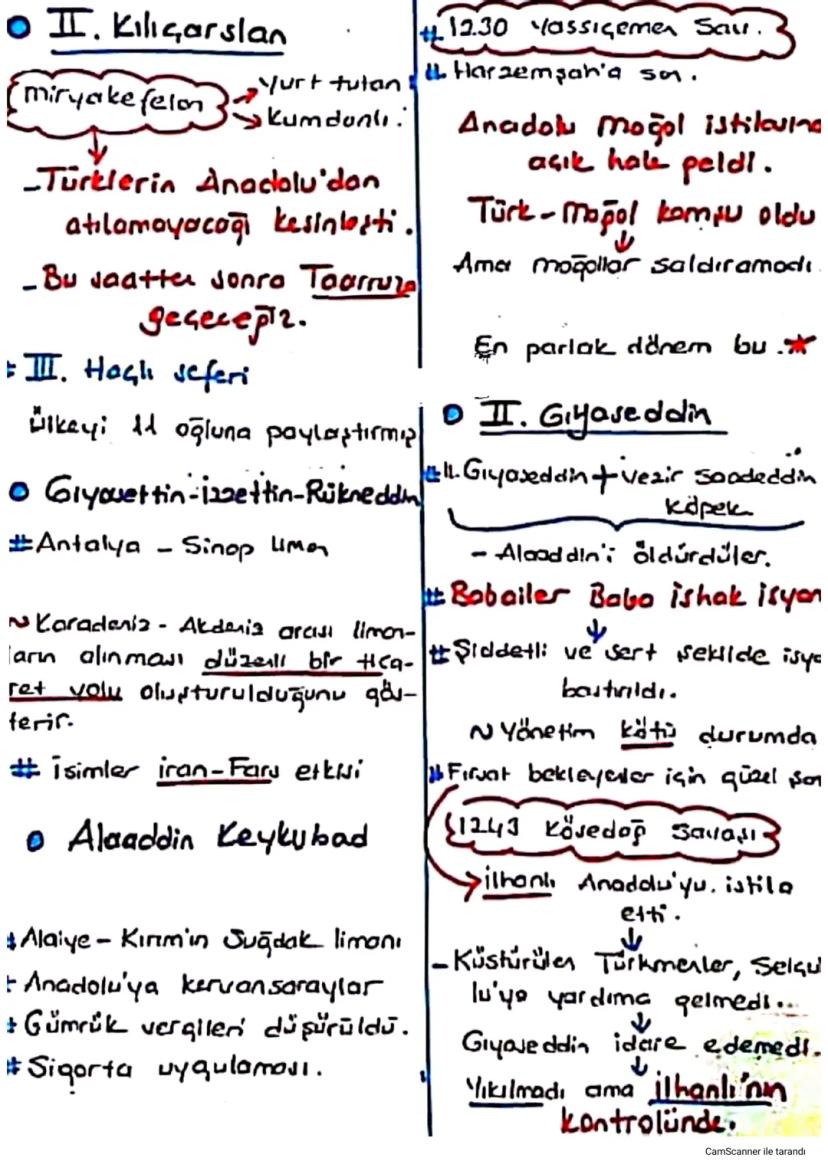 II. Kılıçarslan
miryakefelon
Yurt tutan
Kumdanlı.
- Türklerin Anadolu'dan
atılamayacağı kesinleşti.
- Bu saatten sonra Taarruza
geçeceğiz.
# III. Haçlı seferi
Ülkeyi 11 oğluna paylaştırmış
Gıyasettin-izzettin-Rükneddin
# Antalya - Sinop liman
~ Karadeniz - Akdeniz arası liman-
ların alınması düzenli bir tica-
ret yolu oluşturulduğunu gös-
terir.
# isimler iran-Fars etkisi
Alaaddin Keykubad
# Alaiye - Kırım'ın Suğdak limanı
+ Anadolu'ya kervansaraylar
# Gümrük vergileri düşürüldü.
# Sigorta uygulaması.
# 1230 Yassıçemen Sav.
# Harzemşah'a son.
Anadolu moğol istilasına
açık hale geldi.
Türk-moğol komşu oldu
Ama moğollar saldıramadı
En parlak dönem bu.
II. Gıyaseddin
# II. Gıyaseddin + vezir Saadeddin
köpek
- Alaaddin'i öldürdüler.
# Babailer Baba ishak isyan
# Şiddetli ve sert şekilde isya
bastırıldı.
~ Yönetim kötü durumda
# Fırsat bekleyenler için güzel şan
1243 Kösedağ Savaşı
ilhanlı Anadolu'yu. istila
etti.
- Küstürülen Türkmenler, Selçu
lu'ya yardıma gelmedi..
Gıyaseddin idare edemedi.
Yıkılmadı ama ilhanlı'nın
kontrolünde.
CamScanner ile tarandı